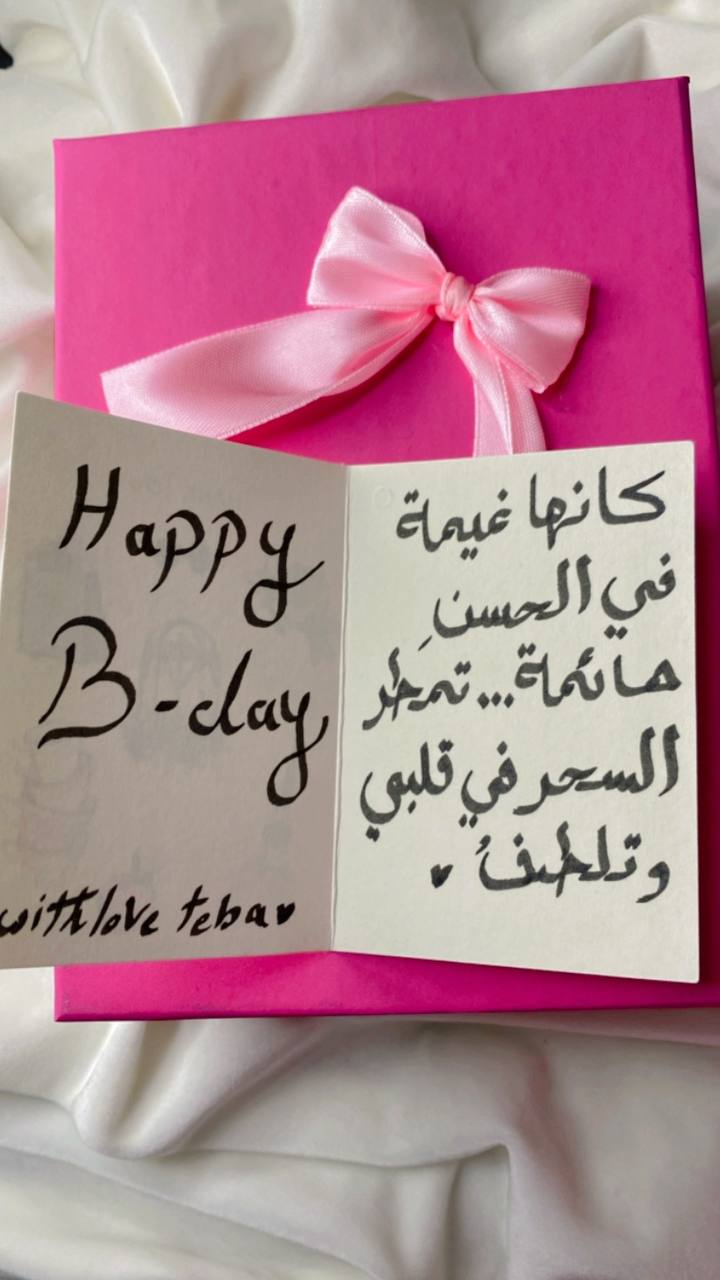 Happy
B-day
with love teba♥
كانها غيمة
في الحسنِ
هائمة... تمطر
السحر في قلبي
وتلطفُ ♥